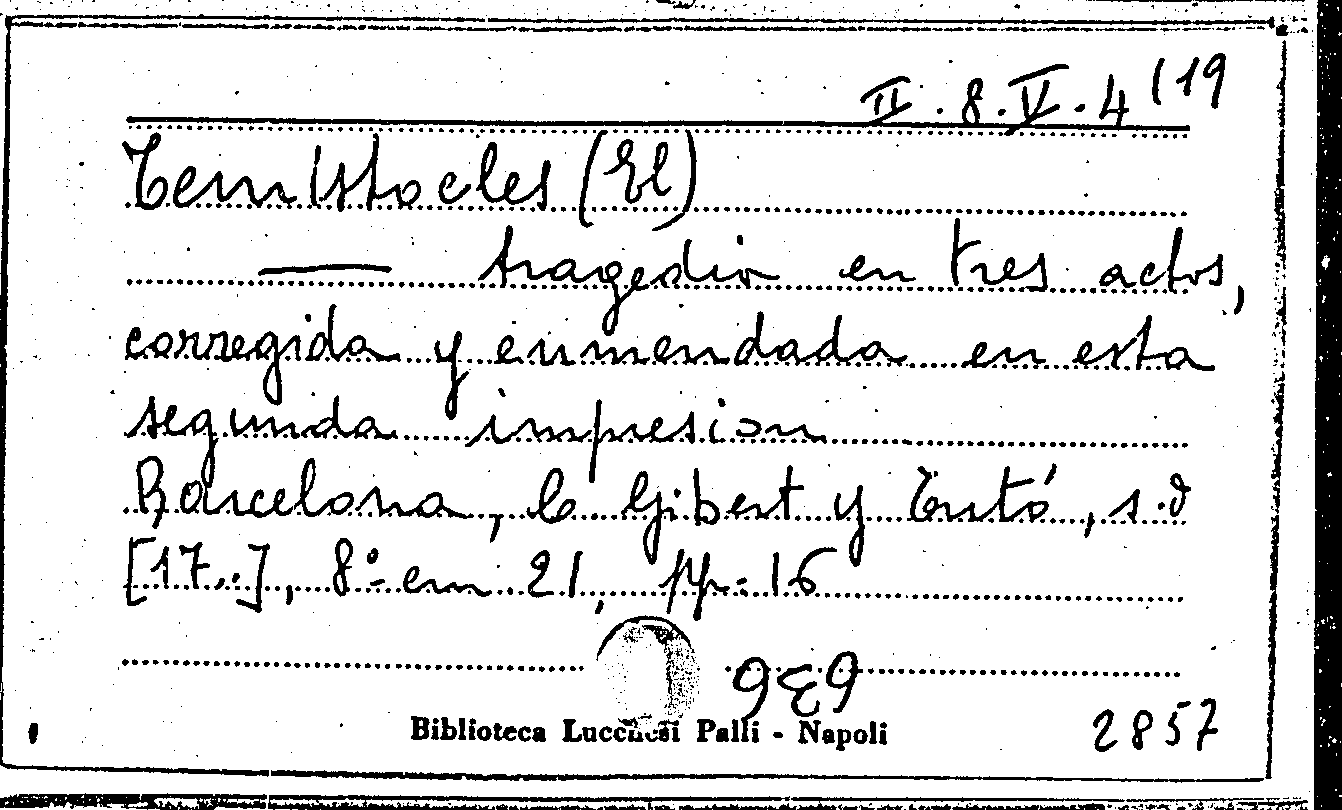 II. 8. V. 4 (19
Temistocles (El)
— tragedia en tres actos,
corregida y enmendada en esta
segunda impresion
Barcelona, C. Gibert y Tutó, s.d
[17..], 8º cm. 21, pp. 16
939
Biblioteca Lucchesi Palli - Napoli
2857